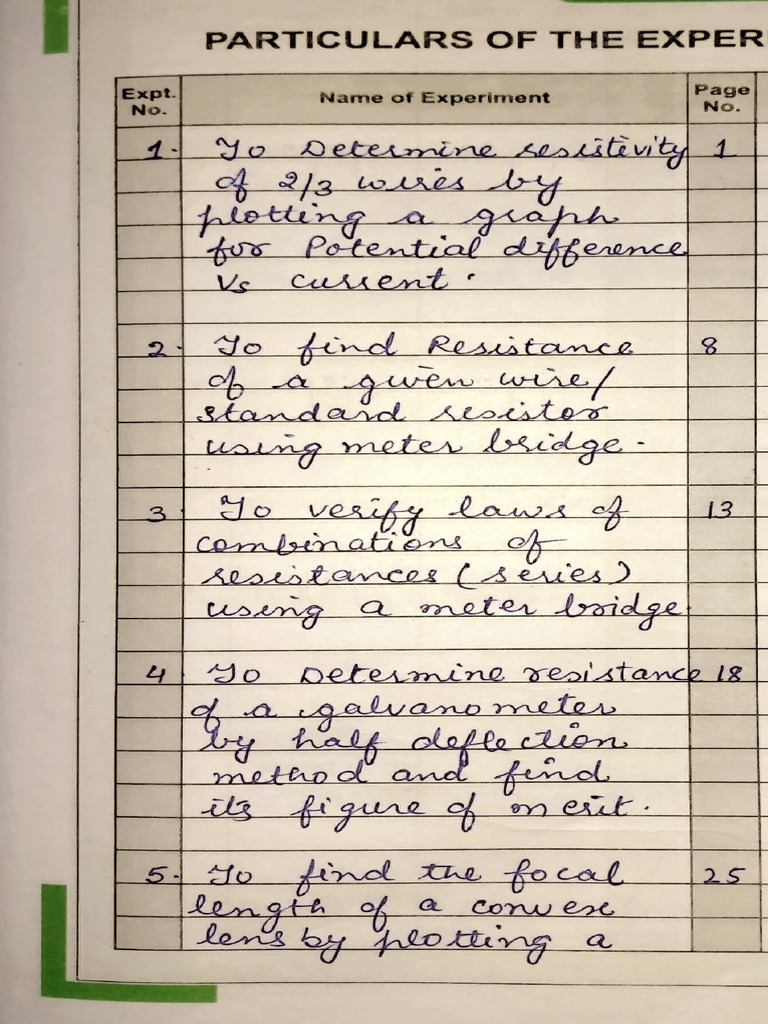 PARTICULARS OF THE EXPER
Expt. No. Name of Experiment Page No.
1. To Determine resistivity 1
of 2/3 wires by
plotting a graph
for Potential difference
Vs current.
2. To find Resistance 8
of a given wire/
standard resistor
using meter bridge.
3 To verify laws of 13
combinations of
resistances (series)
using a meter bridge
4 To Determine resistance 18
of a galvanometer
by half deflection
method and find
its figure of merit.
5. To find the focal 25
length of a convex
lens by plotting a